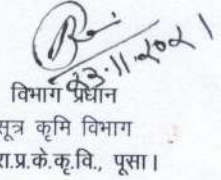 23.11.2021
विभाग प्रधान
सूत्र कृमि विभाग
रा.प्र.के.कृ.वि., पूसा।